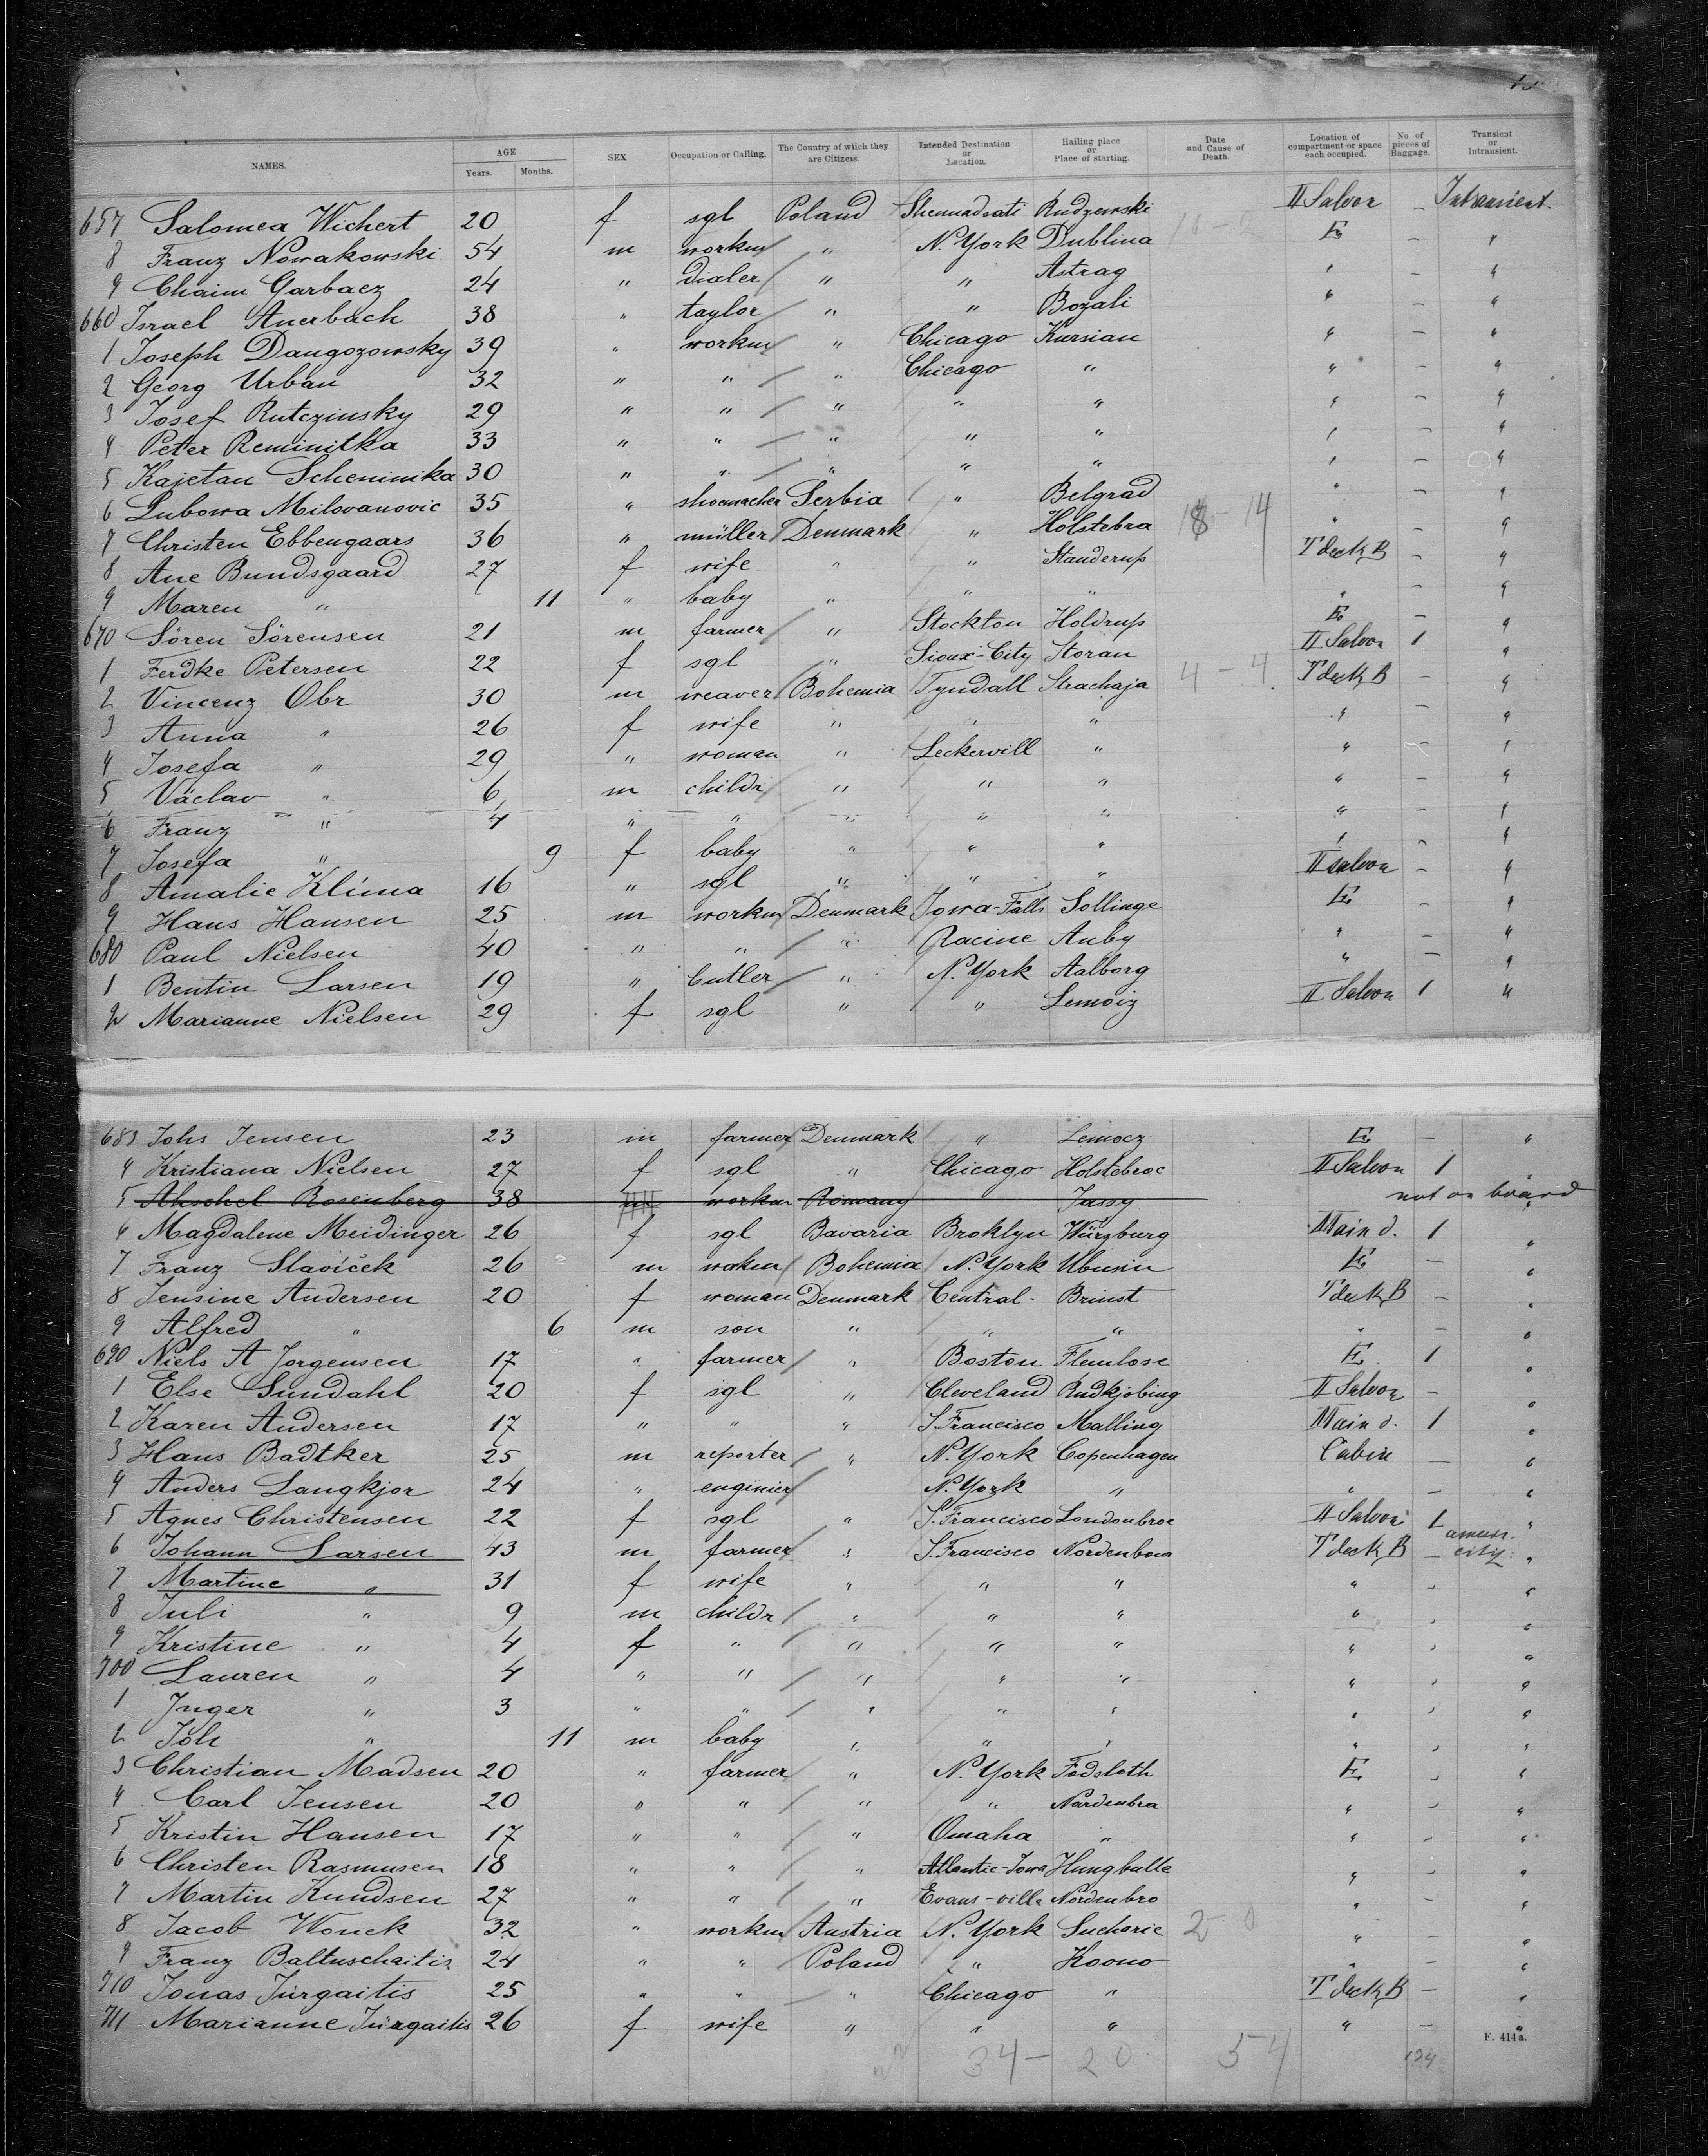 NAMES. AGE Years. Months. SEX Occupation or Calling. The Country of which they are Citizens. Intended Destination or Location. Hailing place or Place of starting. Date and Cause of Death. Location of compartment or space each occupied. No. of pieces of Baggage. Transient or Intransient.
657 Salomea Wichert 20 f sgl Poland Rudzewski II Saloon - Intransient.
8 Franz Nowakowski 54 m workm " N. York Dublina E - "
9 Chaim Garbacz 24 " dialer " " Astrag " - "
660 Israel Auerbach 38 " taylor " " Bozali " - "
1 Joseph Daugozowsky 39 " workm " Chicago Kursian " - "
2 Georg Urban 32 " " " Chicago " " - "
3 Josef Rutczinsky 29 " " " " " " - "
4 Peter Reminitka 33 " " " " " " - "
5 Kajetan Scheninika 30 " " " " " " - "
6 Lubowa Milovanovic 35 " shoemacher Serbia " Belgrad " - "
7 Christen Ebbengaars 36 " müller Denmark " Holstebra 18 - 14 " - "
8 Ane Bundsgaard 27 f wife " " Standerup T deck B - "
9 Maren " 11 " baby " " " " - "
670 Sören Sörensen 21 m farmer " Stockton Holdrup E - "
1 Ferdke Petersen 22 f sgl " Sioux-City Storan II Saloon 1 "
2 Vincenz Obr 30 m weaver Bohemia Tyndall Strachaja 4 - 4 T deck B - "
3 Anna " 26 f wife " " " " - "
4 Josefa " 29 " woman " Leckervill " " - "
5 Václav " 6 m childr " " " " - "
6 Franz " 4 " " " " " " - "
7 Josefa " 9 f baby " " " " - "
8 Amalie Klima 16 " sgl " " " II saloon - "
9 Hans Hansen 25 m workm Denmark Iowa-Falls Sollinge E - "
680 Paul Nielsen 40 " " " Racine Auby " - "
1 Bentin Larsen 19 " butler " N. York Aalborg " - "
2 Marianne Nielsen 29 f sgl " " Lemoiz II Saloon 1 "
683 Johs Jensen 23 m farmer Denmark " Lemocz E - "
4 Kristiana Nielsen 27 f sgl " Chicago Holstebroe II Saloon 1 "
5 Rosenberg 38 workm Romany Jassy not on board "
6 Magdalene Meidinger 26 f sgl Bavaria Broklyn Würzburg Main d. 1 "
7 Franz Slavíček 26 m workm Bohemia N. York E - "
8 Jensine Andersen 20 f woman Denmark Central- Brinst T deck B - "
9 Alfred " 6 m son " " " " - "
690 Niels A Jorgensen 17 " farmer " Boston Flemlose E 1 "
1 Else Sundahl 20 f sgl " Cleveland Rudkjobing II Saloon - "
2 Karen Andersen 17 " " " S. Francisco Malling Main d. 1 "
3 Hans Badtker 25 m reporter " N. York Copenhagen Cabin - "
4 Anders Langkjor 24 " enginier N. York " " - "
5 Agnes Christensen 22 f sgl " S. Francisco Londonbroe II Saloon 1 "
6 Johann Larsen 43 m farmer " S. Francisco Nordenbour T deck B - amer. city. "
7 Martine " 31 f wife " " " " - "
8 Juli " 9 m childr " " " " "
9 Kristine " 4 f " " " " " "
700 Lauren " 4 " " " " " " "
1 Inger " 3 " " " " " " "
2 Joh " 11 m baby " " " " "
3 Christian Madsen 20 " farmer " N. York Fodsloth E "
4 Carl Jensen 20 " " " " Nardenbra " "
5 Kristin Hansen 17 " " " Omaha " " - "
6 Christen Rasmusen 18 " " " Atlantic-Iowa Hungballe " - "
7 Martin Knudsen 27 " " " Evans-ville Nordenbro " - "
8 Jacob Wonek 32 " workm Austria N. York Sucharie 2 0 " - "
9 Franz Baltuschaitis 24 " " Poland " Koono " - "
710 Jonas Jürgaitis 25 " " " Chicago " T deck B - "
711 Marianne Jürgaitis 26 f wife " " " " - "
34 - 20 54 134
F. 414a.